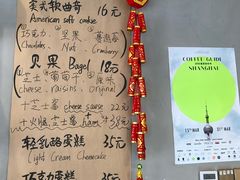 美式软曲奇 16元
American soft cookie
巧克力、坚果、蔓越莓
Chocolates, Nut, Cranberry
贝果 Bagel 18元
芝士 葡萄干 原味
cheese, raisins, original
+芝士酱 cheese sauce 22元
+火腿芝士 ham 32元
轻乳酪蛋糕 35元
Light Cream Cheesecake
巧克力蛋糕 35元
COFFEE GUIDE
SHANGHAI